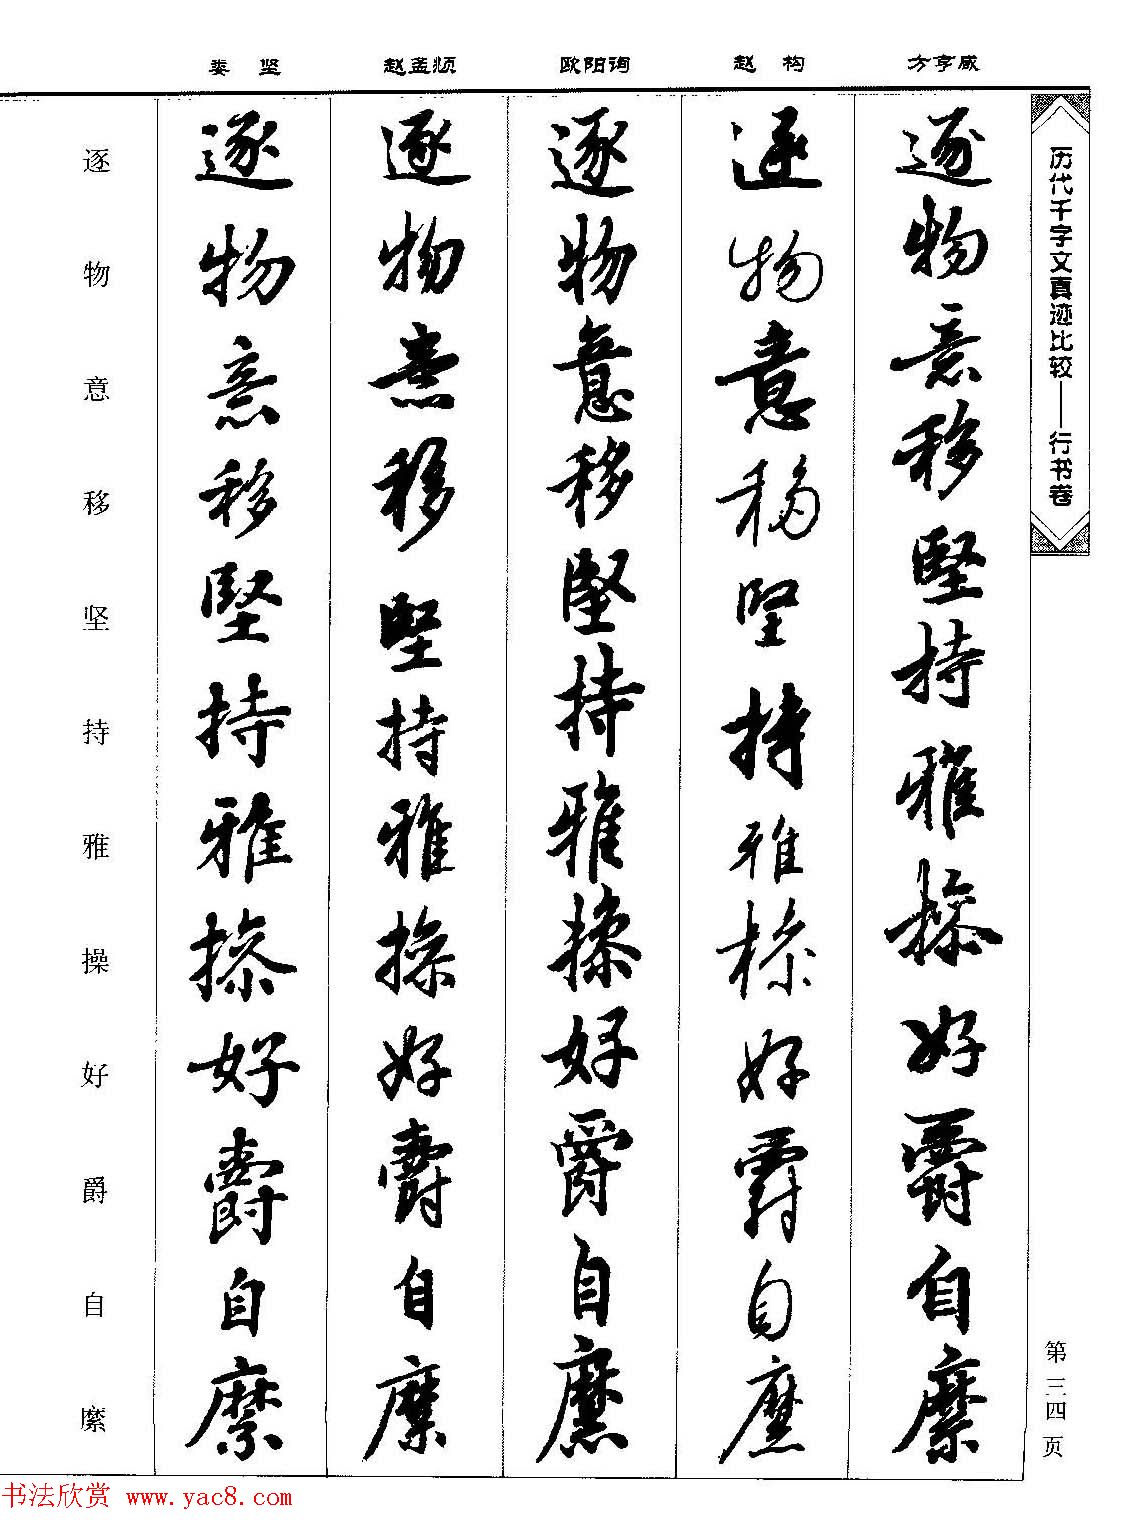 历代千字文真迹比较——行书卷
第三四页
方亨咸
逐物意移堅持雅操好爵自縻
赵构
逐物意移堅持雅操好爵自縻
欧阳询
逐物意移堅持雅操好爵自縻
赵孟頫
逐物意移堅持雅操好爵自縻
娄坚
逐物意移堅持雅操好爵自縻
逐物意移坚持雅操好爵自縻
书法欣赏 www.yac8.com